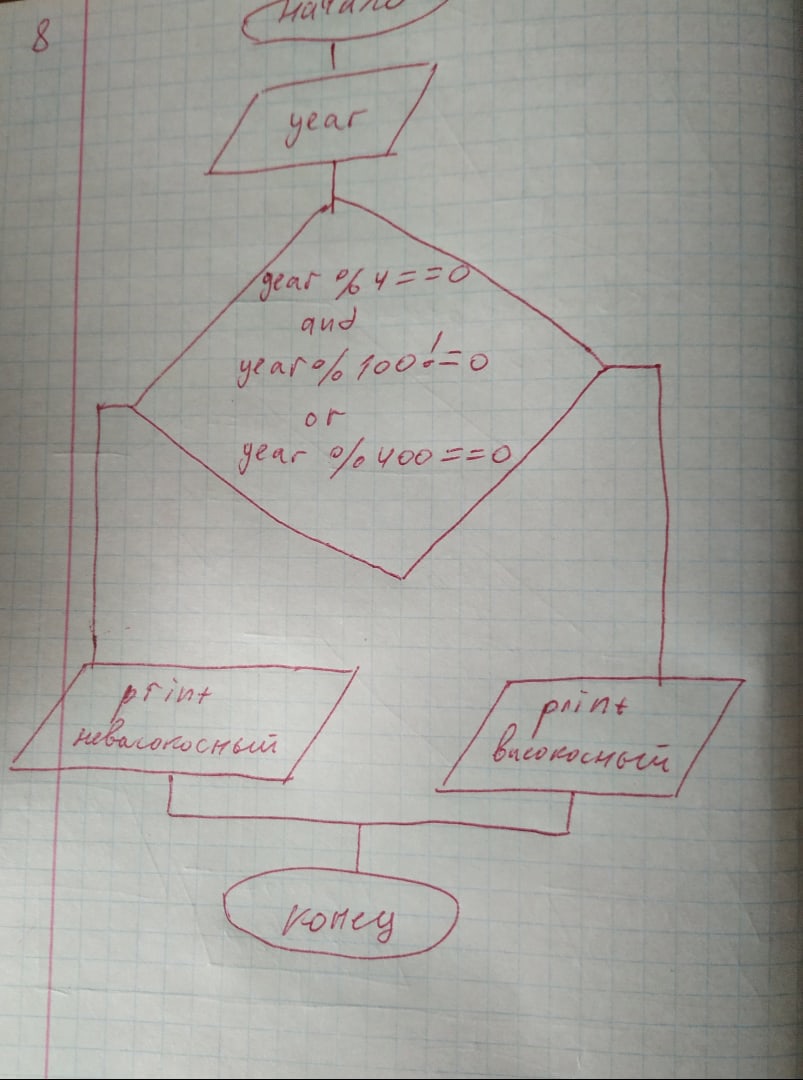 8
начало
year
year % 4 == 0
and
year % 100 != 0
or
year % 400 == 0
print
невисокосный
print
високосный
конец